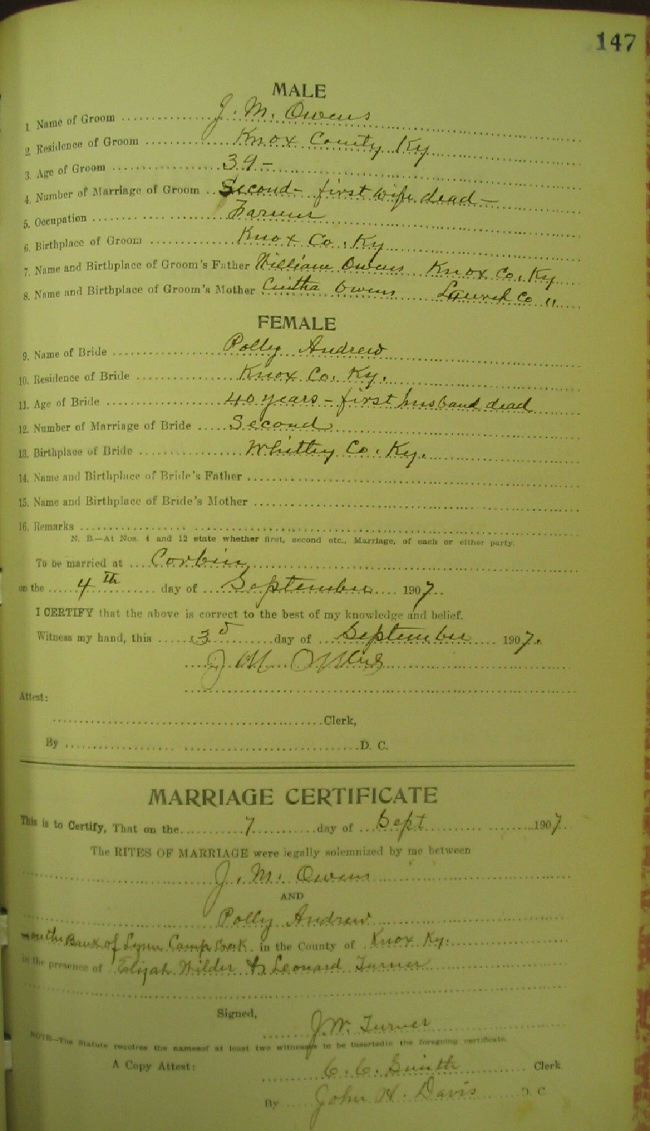 147
MALE
1. Name of Groom J. M. Owens
2. Residence of Groom Knox County Ky
3. Age of Groom 39 –
4. Number of Marriage of Groom Second – first wife dead –
5. Occupation Farmer
6. Birthplace of Groom Knox Co. Ky
7. Name and Birthplace of Groom's Father William Owens Knox Co. Ky
8. Name and Birthplace of Groom's Mother Owens Laurel Co "
FEMALE
9. Name of Bride Polly Andrew
10. Residence of Bride Knox Co. Ky.
11. Age of Bride 40 years – first husband dead
12. Number of Marriage of Bride Second
13. Birthplace of Bride Whitley Co. Ky.
14. Name and Birthplace of Bride's Father
15. Name and Birthplace of Bride's Mother
16. Remarks
N. B.—At Nos. 4 and 12 state whether first, second etc., Marriage, of each or either party.
To be married at Corbin
on the 4th day of September 1907.
I CERTIFY that the above is correct to the best of my knowledge and belief.
Witness my hand, this 3d day of September 1907.
J M
Attest:
Clerk,
By D. C.
MARRIAGE CERTIFICATE
This is to Certify, That on the 7 day of Sept 1907
The RITES OF MARRIAGE were legally solemnized by me between
J. M. Owens
AND
Polly Andrew
on the Bank of Lynn Camp in the County of Knox Ky.
in the presence of Elijah Wilder & Leonard Turner
Signed,
J. W. Turner
NOTE—The Statute requires the names of at least two witnesses to be inserted in the foregoing certificate.
A Copy Attest: C. C. Smith Clerk
By John H. Davis D. C.